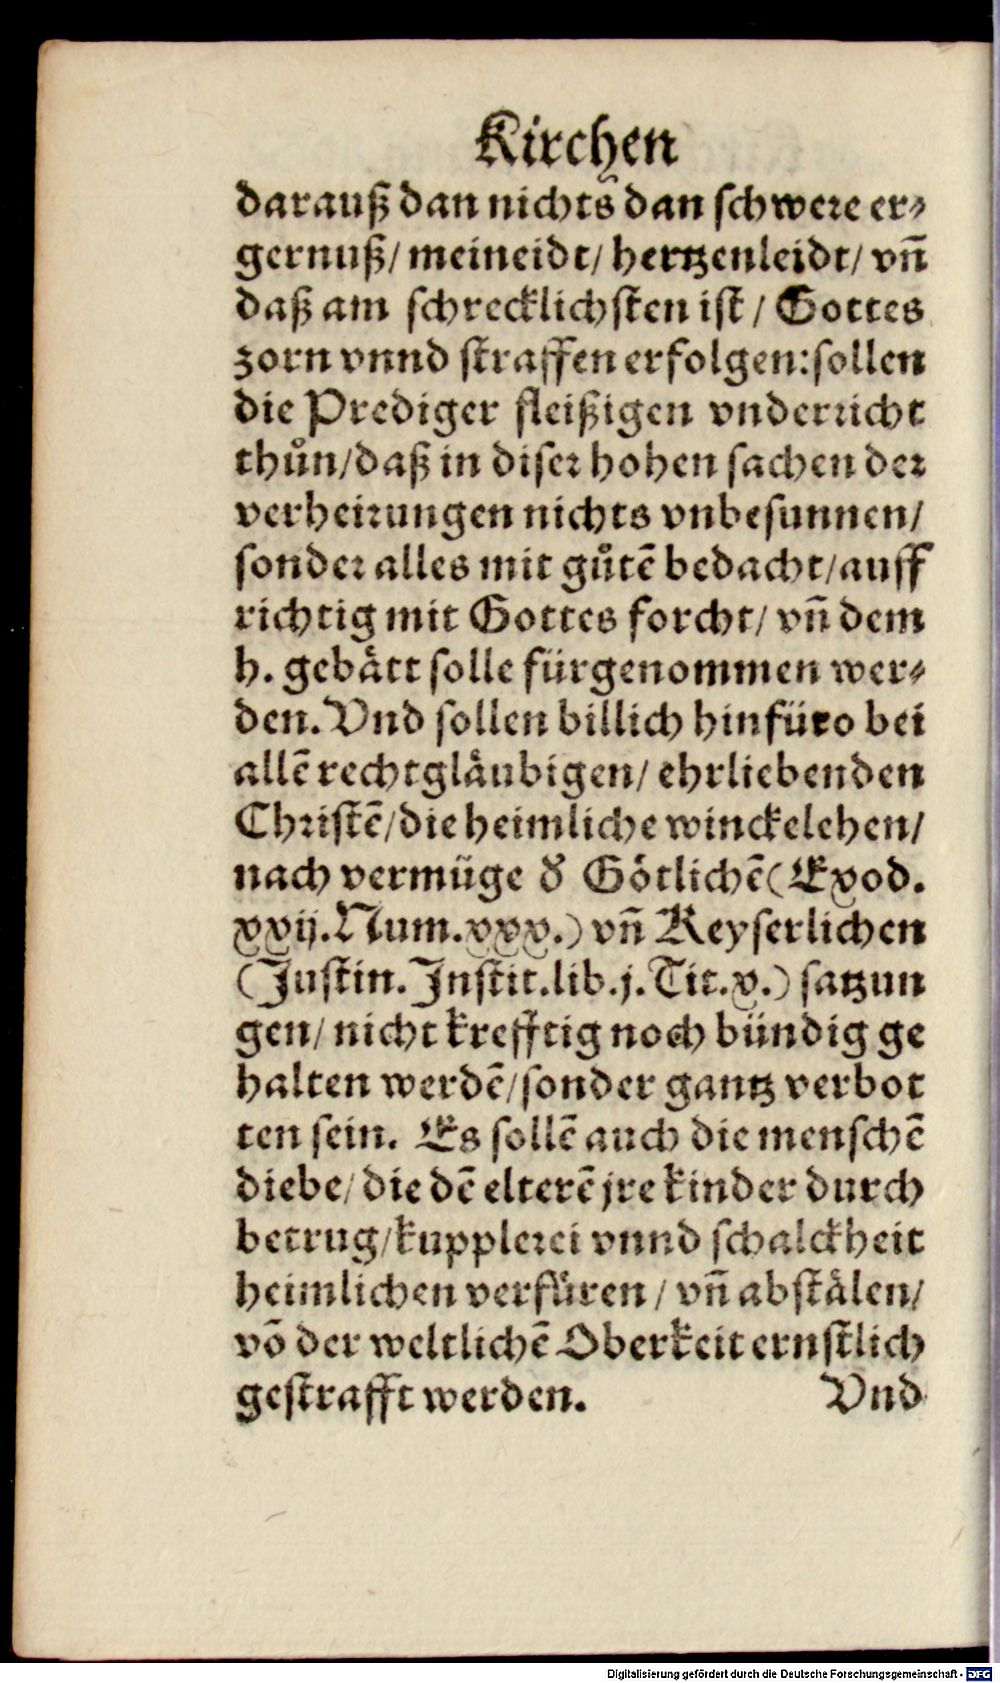 Kirchen
darauß dan nichts dan schwere er⸗
gernuß/ meineidt/ hertzenleidt/ vñ
daß am schrecklichsten ist/ Gottes
zorn vnnd straffen erfolgen: sollen
die Prediger fleißigen vnderricht
thůn/ daß in diser hohen sachen der
verheirungen nichts vnbesunnen/
sonder alles mit gůtē bedacht/ auff
richtig mit Gottes forcht/ vñ dem
h. gebått solle fürgenommen wer⸗
den. Vnd sollen billich hinfüro bei
allē rechtglåubigen/ ehrliebenden
Christē/ die heimliche winckelehen/
nach vermüge d̕ Gŏtlichē (Exod.
xxij. Num. xxx.) vñ Keyserlichen
(Justin. Instit. lib. j. Tit. x.) satzun
gen/ nicht krefftig noch bündig ge
halten werdē/ sonder gantz verbot
ten sein. Es sollē auch die menschē
diebe/ die dē elterē jre kinder durch
betrug/ kupplerei vnnd schalckheit
heimlichen verfüren/ vñ abstålen/
vō der weltlichē Oberkeit ernstlich
gestrafft werden. Vnd
Digitalisierung gefördert durch die Deutsche Forschungsgemeinschaft - DFG